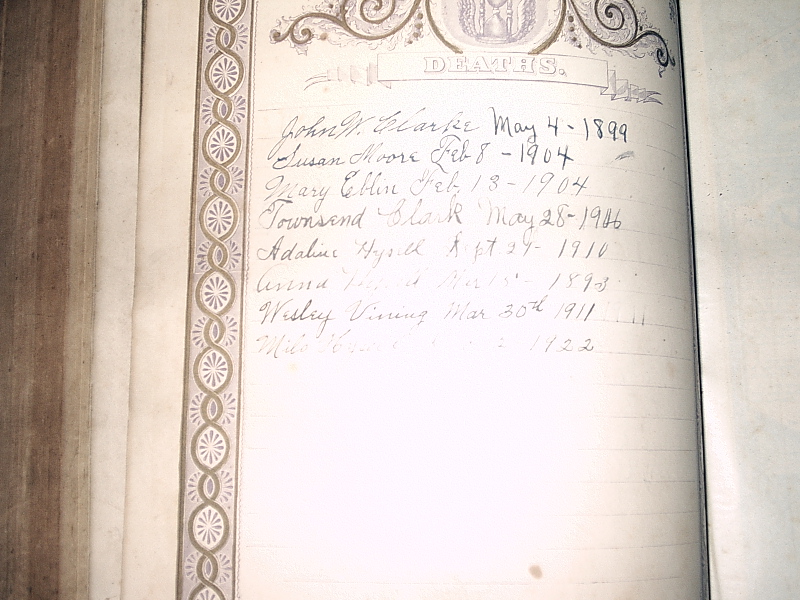 DEATHS.
John W. Clarke May 4 - 1899
Susan Moore Feb 8 - 1904
Mary Eblin Feb, 13 - 1904
Townsend Clark May 28 - 1906
Adaline Hysell Sept 29 - 1910
Anna Mar 15 - 1893
Wesley Vining Mar 30th 1911
Milo 1922